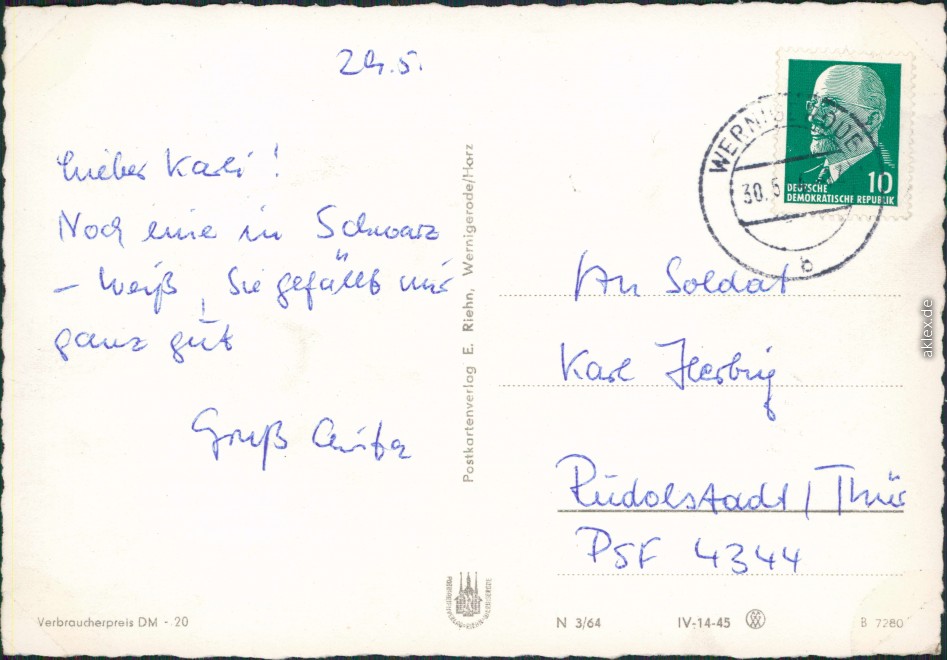 29.5.
Lieber Karli!
Noch eine in Schwarz
- weiß, Sie gefällt mir
ganz gut
Gruß
Postkartenverlag E. Riehn, Wernigerode/Harz
WERNIGERODE
30.5
b
10
DEUTSCHE
DEMOKRATISCHE REPUBLIK
An Soldat
Karl Herbig
Rudolstadt/Thür
PSF 4344
Verbraucherpreis DM -.20
N 3/64
IV-14-45
B 7280
akpool.de